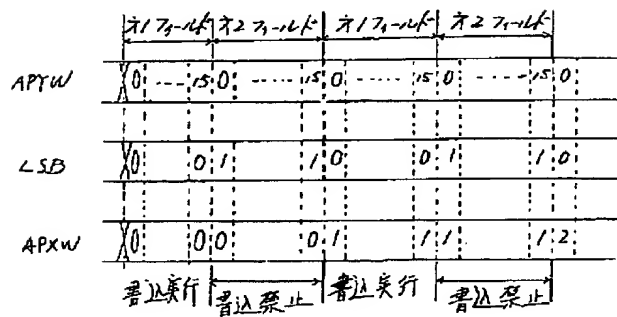 オ1フィールド オ2フィールド オ1フィールド オ2フィールド
APYW 0 ---- 15 0 ---- 15 0 ---- 15 0 ---- 15 0
LSB 0 0 1 1 0 0 1 1 0
APXW 0 0 0 0 1 1 1 1 2
書込実行 書込禁止 書込実行 書込禁止